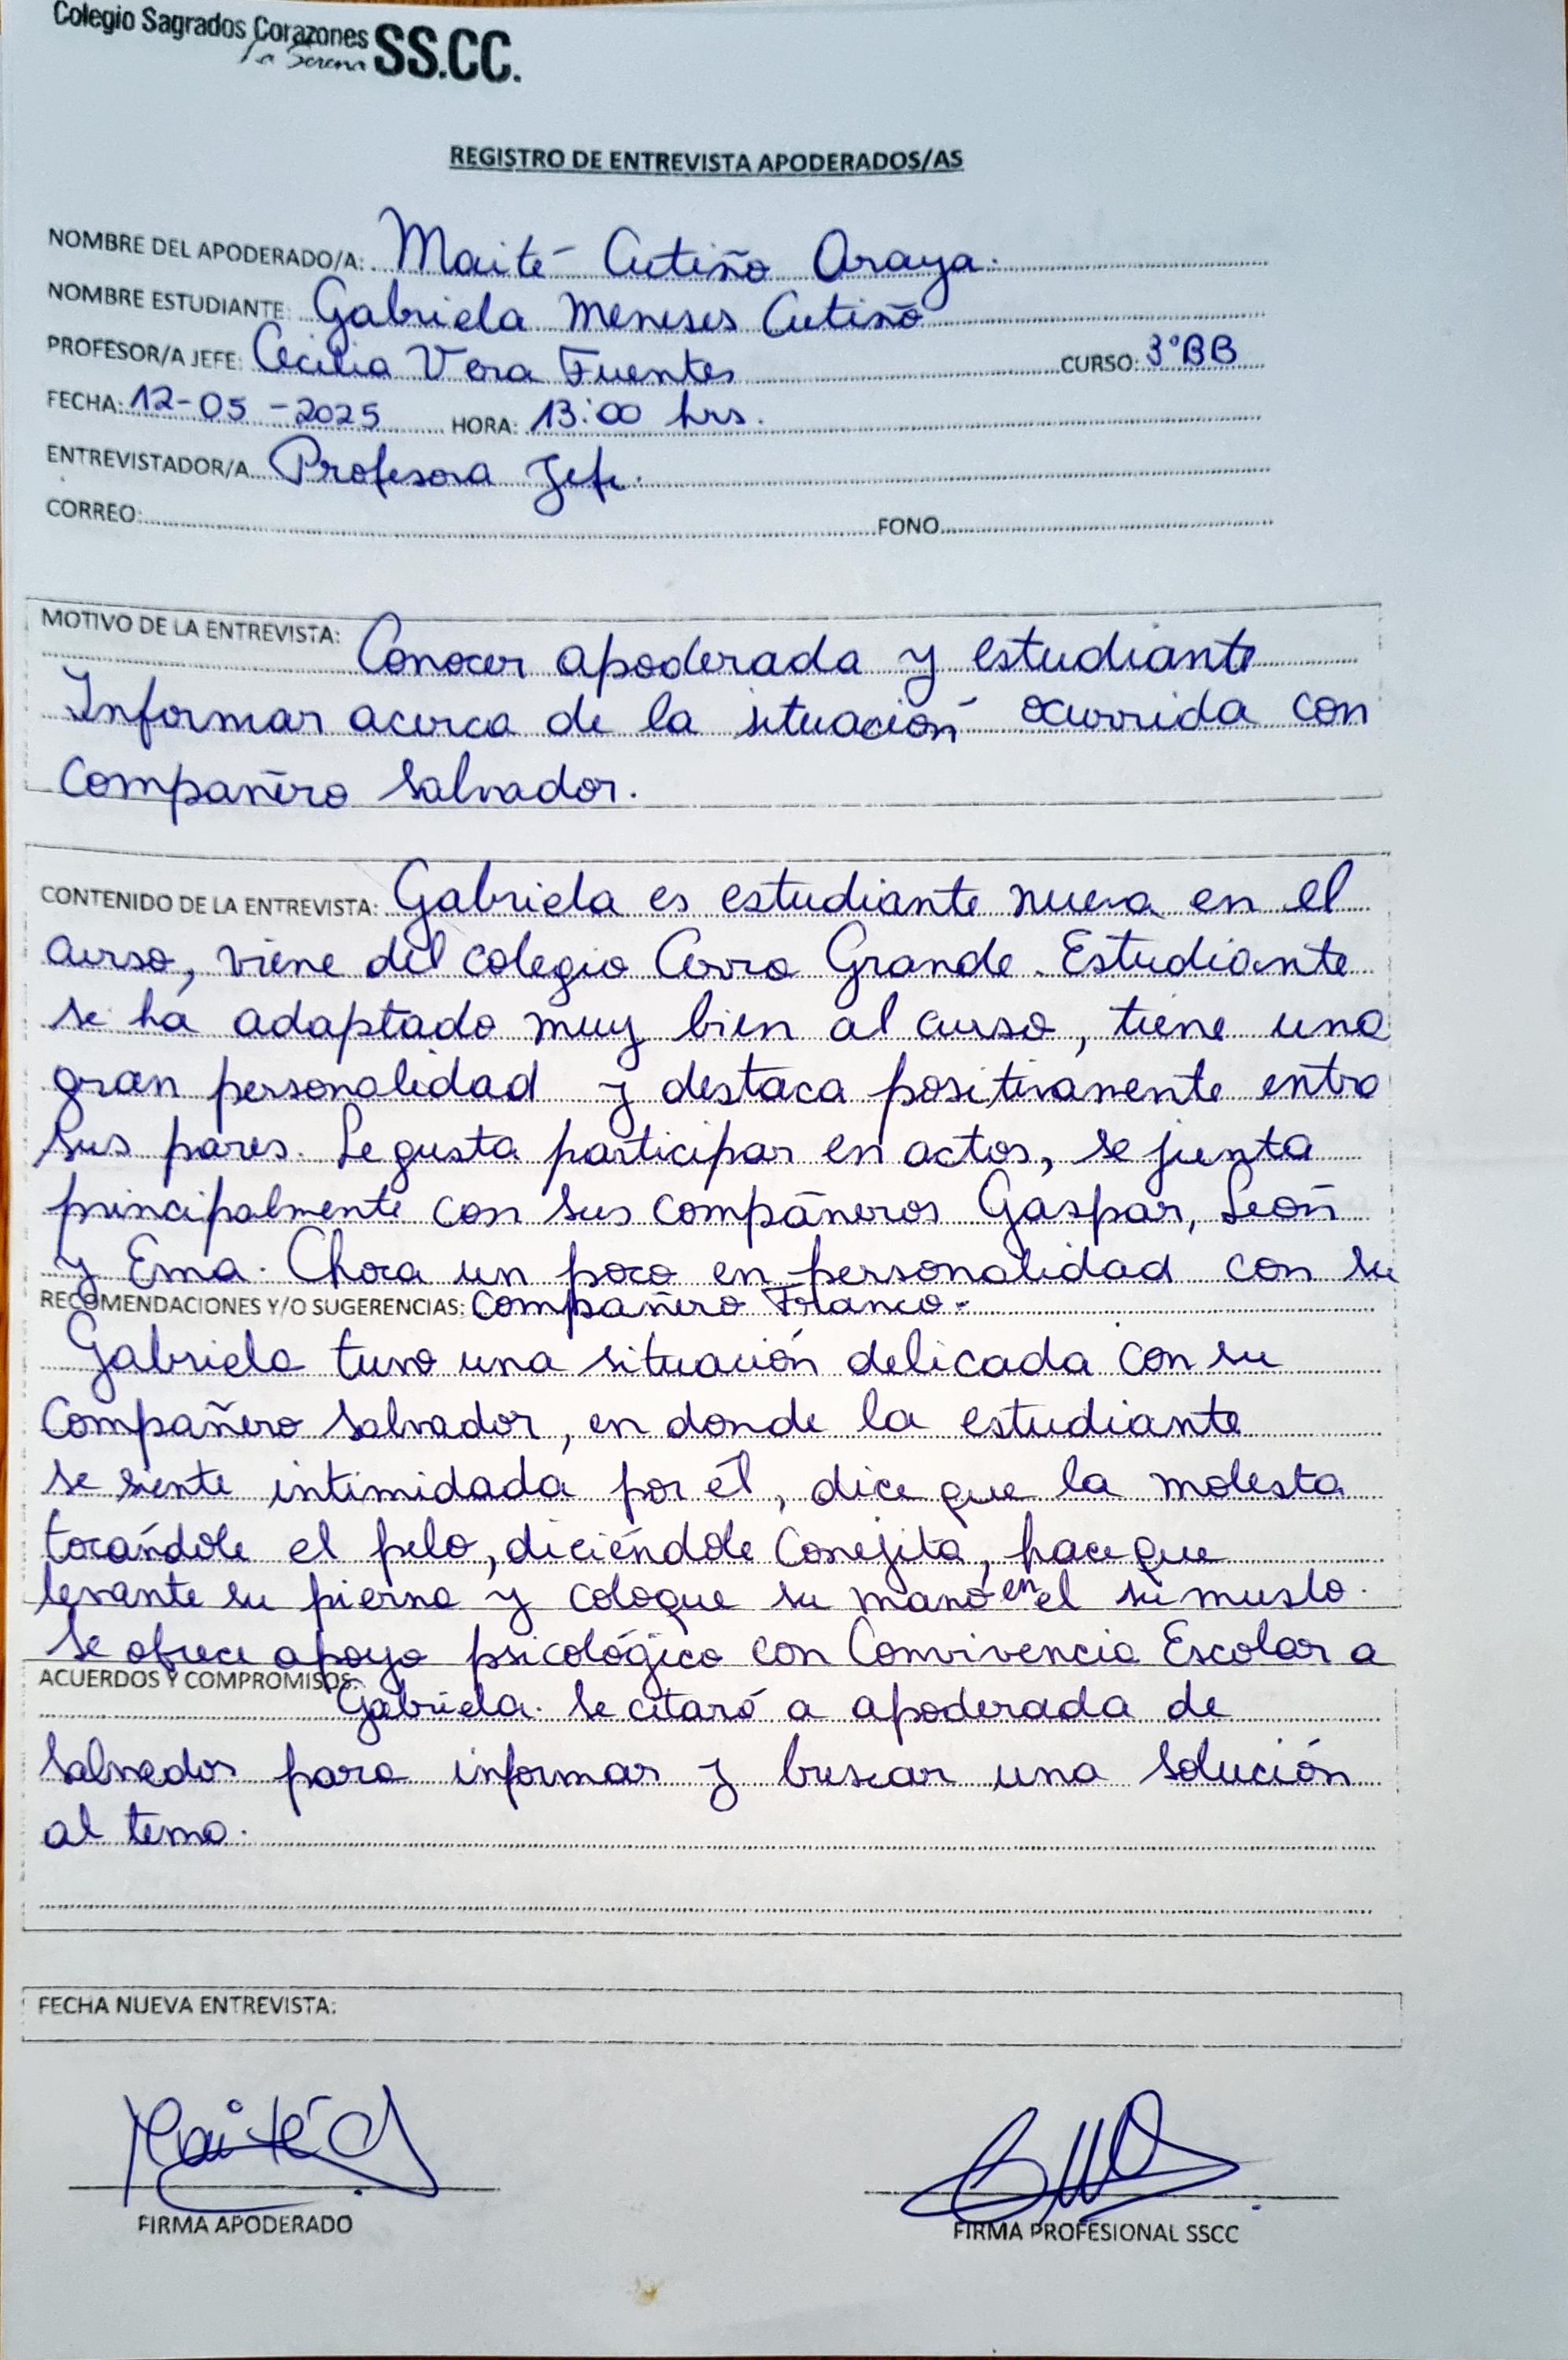 Colegio Sagrados Corazones SS.CC.
La Serena
REGISTRO DE ENTREVISTA APODERADOS/AS
NOMBRE DEL APODERADO/A: Maité Cutiño Araya.
NOMBRE ESTUDIANTE: Gabriela Meneses Cutiño
PROFESOR/A JEFE: Cecilia Vera Fuentes CURSO: 3°BB
FECHA: 12-05-2025 HORA: 13:00 hrs.
ENTREVISTADOR/A Profesora Jefe.
CORREO: FONO
MOTIVO DE LA ENTREVISTA: Conocer apoderada y estudiante
Informar acerca de la situación ocurrida con
compañero Salvador.
CONTENIDO DE LA ENTREVISTA: Gabriela es estudiante nueva en el
curso, viene del colegio Cerro Grande. Estudiante
se ha adaptado muy bien al curso, tiene una
gran personalidad y destaca positivamente entre
sus pares. Le gusta participar en actos, se junta
principalmente con sus compañeros Gaspar, León
y Ema. Choca un poco en personalidad con su
RECOMENDACIONES Y/O SUGERENCIAS: compañero Franco.
Gabriela tuvo una situación delicada con su
compañero Salvador, en donde la estudiante
se siente intimidada por él, dice que la molesta
tocándole el pelo, diciéndole Conejita, hace que
levante su pierna y coloque su mano en el su muslo.
Se ofrece apoyo psicológico con Convivencia Escolar a
ACUERDOS Y COMPROMISOS: Gabriela. Se citará a apoderada de
Salvador para informar y buscar una solución
al tema.
FECHA NUEVA ENTREVISTA:
Maité C
FIRMA APODERADO FIRMA PROFESIONAL SSCC